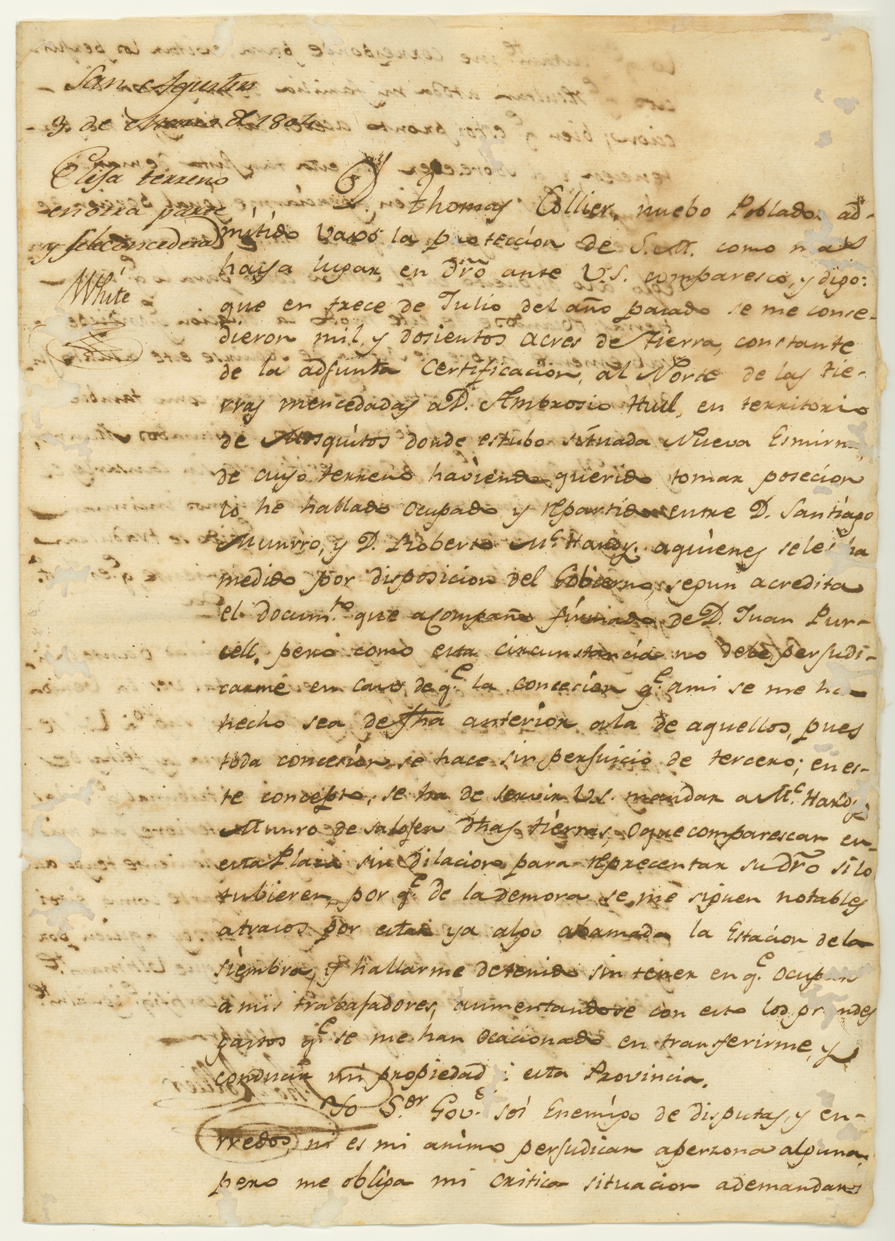 San Agustin
3. de Enero de 1804
Elija terreno
en otra parte
y se le concederá
White
Thomas Collier, nuebo Poblador ad-
mitido vaxo la proteccion de S. M. como mas
haya lugar en dro ante V.S. comparesco, y digo:
que en trece de Julio del año pasado se me conse-
dieron mil, y dosientos acres de tierra, constante
de la adjunta Certificacion, al Norte de las tie-
rras mencedadas a D. Ambrosio Hull, en territorio
de Mosquitos donde estubo situada Nueva Esmirna
de cuyo terreno haviendo querido tomar posecion
lo he hallado ocupado y repartido entre D. Santiago
Munrro, y D. Roberto McHardy. aquienes se les ha
medido por disposicion del Gobierno, segun acredita
el docum.to que acompaño firmado de D. Juan Pur-
cell, pero como esta circunstancia no debe perjudi-
carme en caso de q.e la concecion q.e ami se me ha
hecho sea de fha anterior ala de aquellos, pues
toda concesion se hace sin perjuicio de tercero; en es-
te concepto, se ha de servir V.S. mandar a Mc.Hardy
Munro de salojen dhas tierras, o que comparescan en
esta Plaza sin Dilacion para reprecentar su dro si lo
tubieren, por q.e de la demora se me siguen notables
atrasos por estar ya algo abamada la Estacion de la
siembra, y hallarme detenido sin tener en q.e ocupar
a mis trabajadores, aumentandose con esto los grandes
gastos q.e se me han ocacionado en transferirme, y
conducir mi propiedad : esta Provincia.
Yo S.or Gov.e soi Enemigo de disputas, y en-
rredos, ni es mi animo perjudicar apersona alguna,
pero me obliga mi critica situacion ademandar